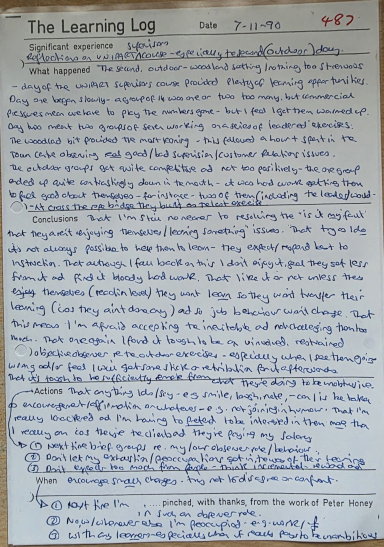 The Learning Log Date 7-11-90 487
Significant experience Supervisors
Reflections on UNIPART COURSE - especially the second (outdoor) day.
What happened The second, outdoor - woodland setting nothing too strenuous
- day of the UNIPART Supervisors course provided plenty of learning opportunities.
Day one began slowly - a group of 14 was one or two too many, but commercial
pressures mean we have to play the numbers game - but I feel I got them warmed up.
Day two meant two groups of seven working on a series of leadered exercises.
The woodland bit provided the most - this followed a hour spent in the
Town Centre observing real good/bad supervision/customer relations issues.
The outdoor groups get quite competitive and not too positively - the one group
ended up quite contrastingly down in the mouth - it was hard work getting them
to feel good about themselves - for instance - two of them (including the leader) would
not cross the bridge they built on exercise
Conclusions That I'm still no nearer to resolving the "is it my fault
that they aren't enjoying themselves/learning something" issues. That try as I do
it's not always possible to help them to learn - they expect/regard best to
instruction. That although I fall back on this I don't enjoy it, feel they get less
from it and find it bloody hard work. That like it or not unless they
enjoy themselves (reaction level) they won't learn so they won't transfer their
learning (cos they ain't done any) and so job behaviour won't change. That
this means I'm afraid accepting the inevitable and not challenging them too
much. That once again I found it tough to be an uninvolved, restrained
objective observer re the outdoor exercises - especially when I see them going
wrong and/or feel I will get some stick or retribution for it afterwards
That it's tough to be sufficiently remote from what they're doing to be unobtrusive.
Actions That anything I do/say - e.g. smile, laugh, note, - can/is be taken
as encouragement/affirmation or whatever - e.g. not joining in humour. That I'm
really and I'm having to pretend to be interested in them more than
I really am cos they're the client and they're paying my salary
① Next time brief groups re. my/our observer role/behaviour.
② Don't let my exhaustion/preoccupations get in the way of their learning
③ Don't expect too much from people - think incremental
When encourage small changes - try not to
① Next time I'm pinched, with thanks, from the work of Peter Honey
in such an observer role.
② Now/whenever else I'm preoccupied - e.g. work/
③ With any learners - especially when it reacts